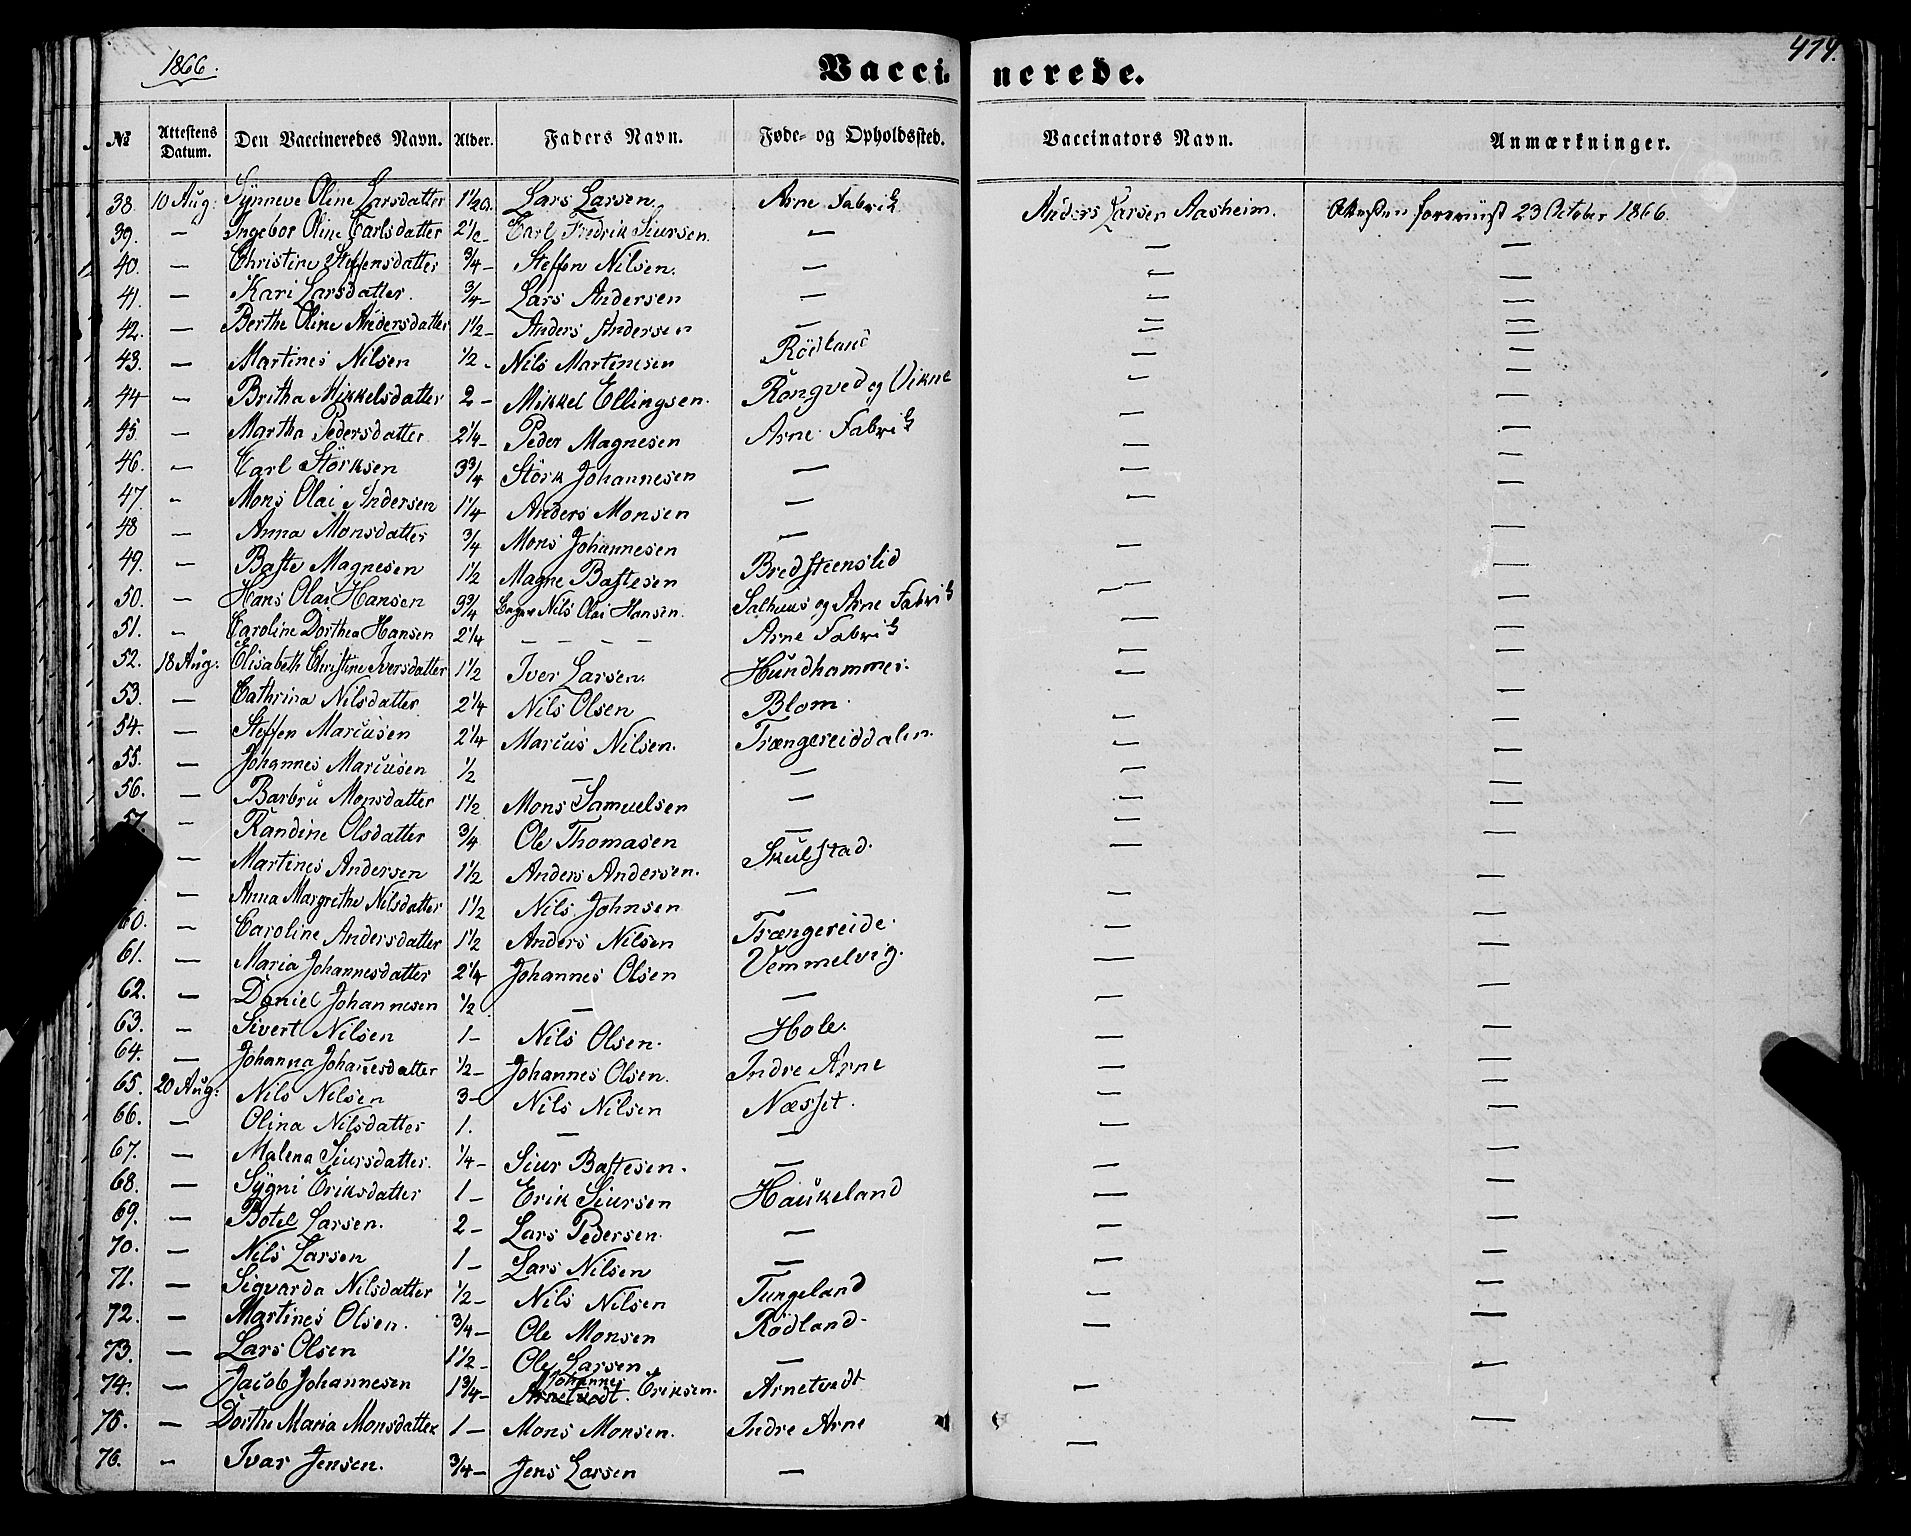 1866.
414.
Vaccinerede.
№ Attestens Datum. Den Vaccineredes Navn. Alder. Faders Navn. Føde- og Opholdssted. Vaccinators Navn. Anmærkninger.
38. 10 Aug: Synneve Oline Larsdatter 1½ a. Lars Larsen. Arne Fabrik Anders Larsen Aasheim. 23 October 1866.
39. — Ingebor Oline Carlsdatter Carl Fredrik Siursen. — — —
40. — Christine Steffensdatter ¾ — Steffen Nilsen. — — —
41. — Kari Larsdatter. ¾ — Lars Andersen — — —
42. — Berthe Oline Andersdatter 1½ — Anders Andersen — — —
43. — Martines Nilsen ½ - Nils Martinesen Rödland — —
44 — Britha Mikkelsdatter 2 — Mikkel Ellingsen. Rongved og Vikne — —
45. — Martha Pedersdatter 2¼ — Peder Magnesen Arne Fabrik — —
46. — Carl Störksen 3¾ Störk Johannesen — — —
47. - Mons Olai Andersen 1¼ Anders Monsen — — —
48 — Anna Monsdatter ¾ Mons Johannesen — — —
49. — Baste Magnesen 1½ Magne Bastesen Bredsteenslid — —
50. — Hans Olai Hansen 3¾ Nils Olai Hansen. Salhuus og Arne Fabrik — —
51. - Caroline Dorthea Hansen 2¼ — — — — Arne Fabrik — —
52. 18 Aug: Elisabeth Christine Iversdatter 1½ Iver Larsen. Hundhammer. — —
53. — Cathrina Nilsdatter 2¼ Nils Olsen Blom. — —
54. — Steffen Mariusen 2¼ Marius Nilsen. Trængereiddalen. — —
55. — Johannes Mariusen ½ — — — —
56. — Barbru Monsdatter 1½ Mons Samuelsen — — —
57. — Randine Olsdatter ¾ Ole Thomasen — — —
— Martines Andersen 1½ Anders Andersen. Skulstad. — —
— Anna Margrethe Nilsdatter 1½ Nils Johnsen — — —
60. — Caroline Andersdatter 1½ Anders Nilsen Trængereide. — —
61. — Maria Johannesdatter 2¼ Johannes Olsen Vemmelvig. — —
62. — Daniel Johannesen ½ — — — —
63. — Sivert Nilsen 1 — Nils Olsen. Hole. — —
64. — Johanna Johanesdatter ½ — Johannes Olsen. Indre Arne — —
65. 20 Aug: Nils Nilsen 3 — Nils Nilsen Næsset. — —
66. — Olina Nilsdatter 1. — — — —
67. — Malena Siursdatter. ¼ — Siur Bastesen. — — —
68. — Sygni Eriksdatter 1 — Erik Siursen Haukeland — —
69. — Botel Larsen. 2 — Lars Pedersen. — — —
70. — Nils Larsen 1 — Lars Nilsen — — —
71. — Sigvarda Nilsdatter ½ — Nils Nilsen Tungeland — —
72. — Martines Olsen. ¾ — Ole Monsen Rödland. — —
73. — Lars Olsen 1½ — Ole Larsen — — —
74. — Jacob Johannesen 1¾ — Johannes Arnetvedt. Eriksen. Arnetvedt — —
75. — Dorthe Maria Monsdatter 1 — Mons Monsen. Indre Arne — —
76. — Ivar Jensen. ¾ — Jens Larsen —